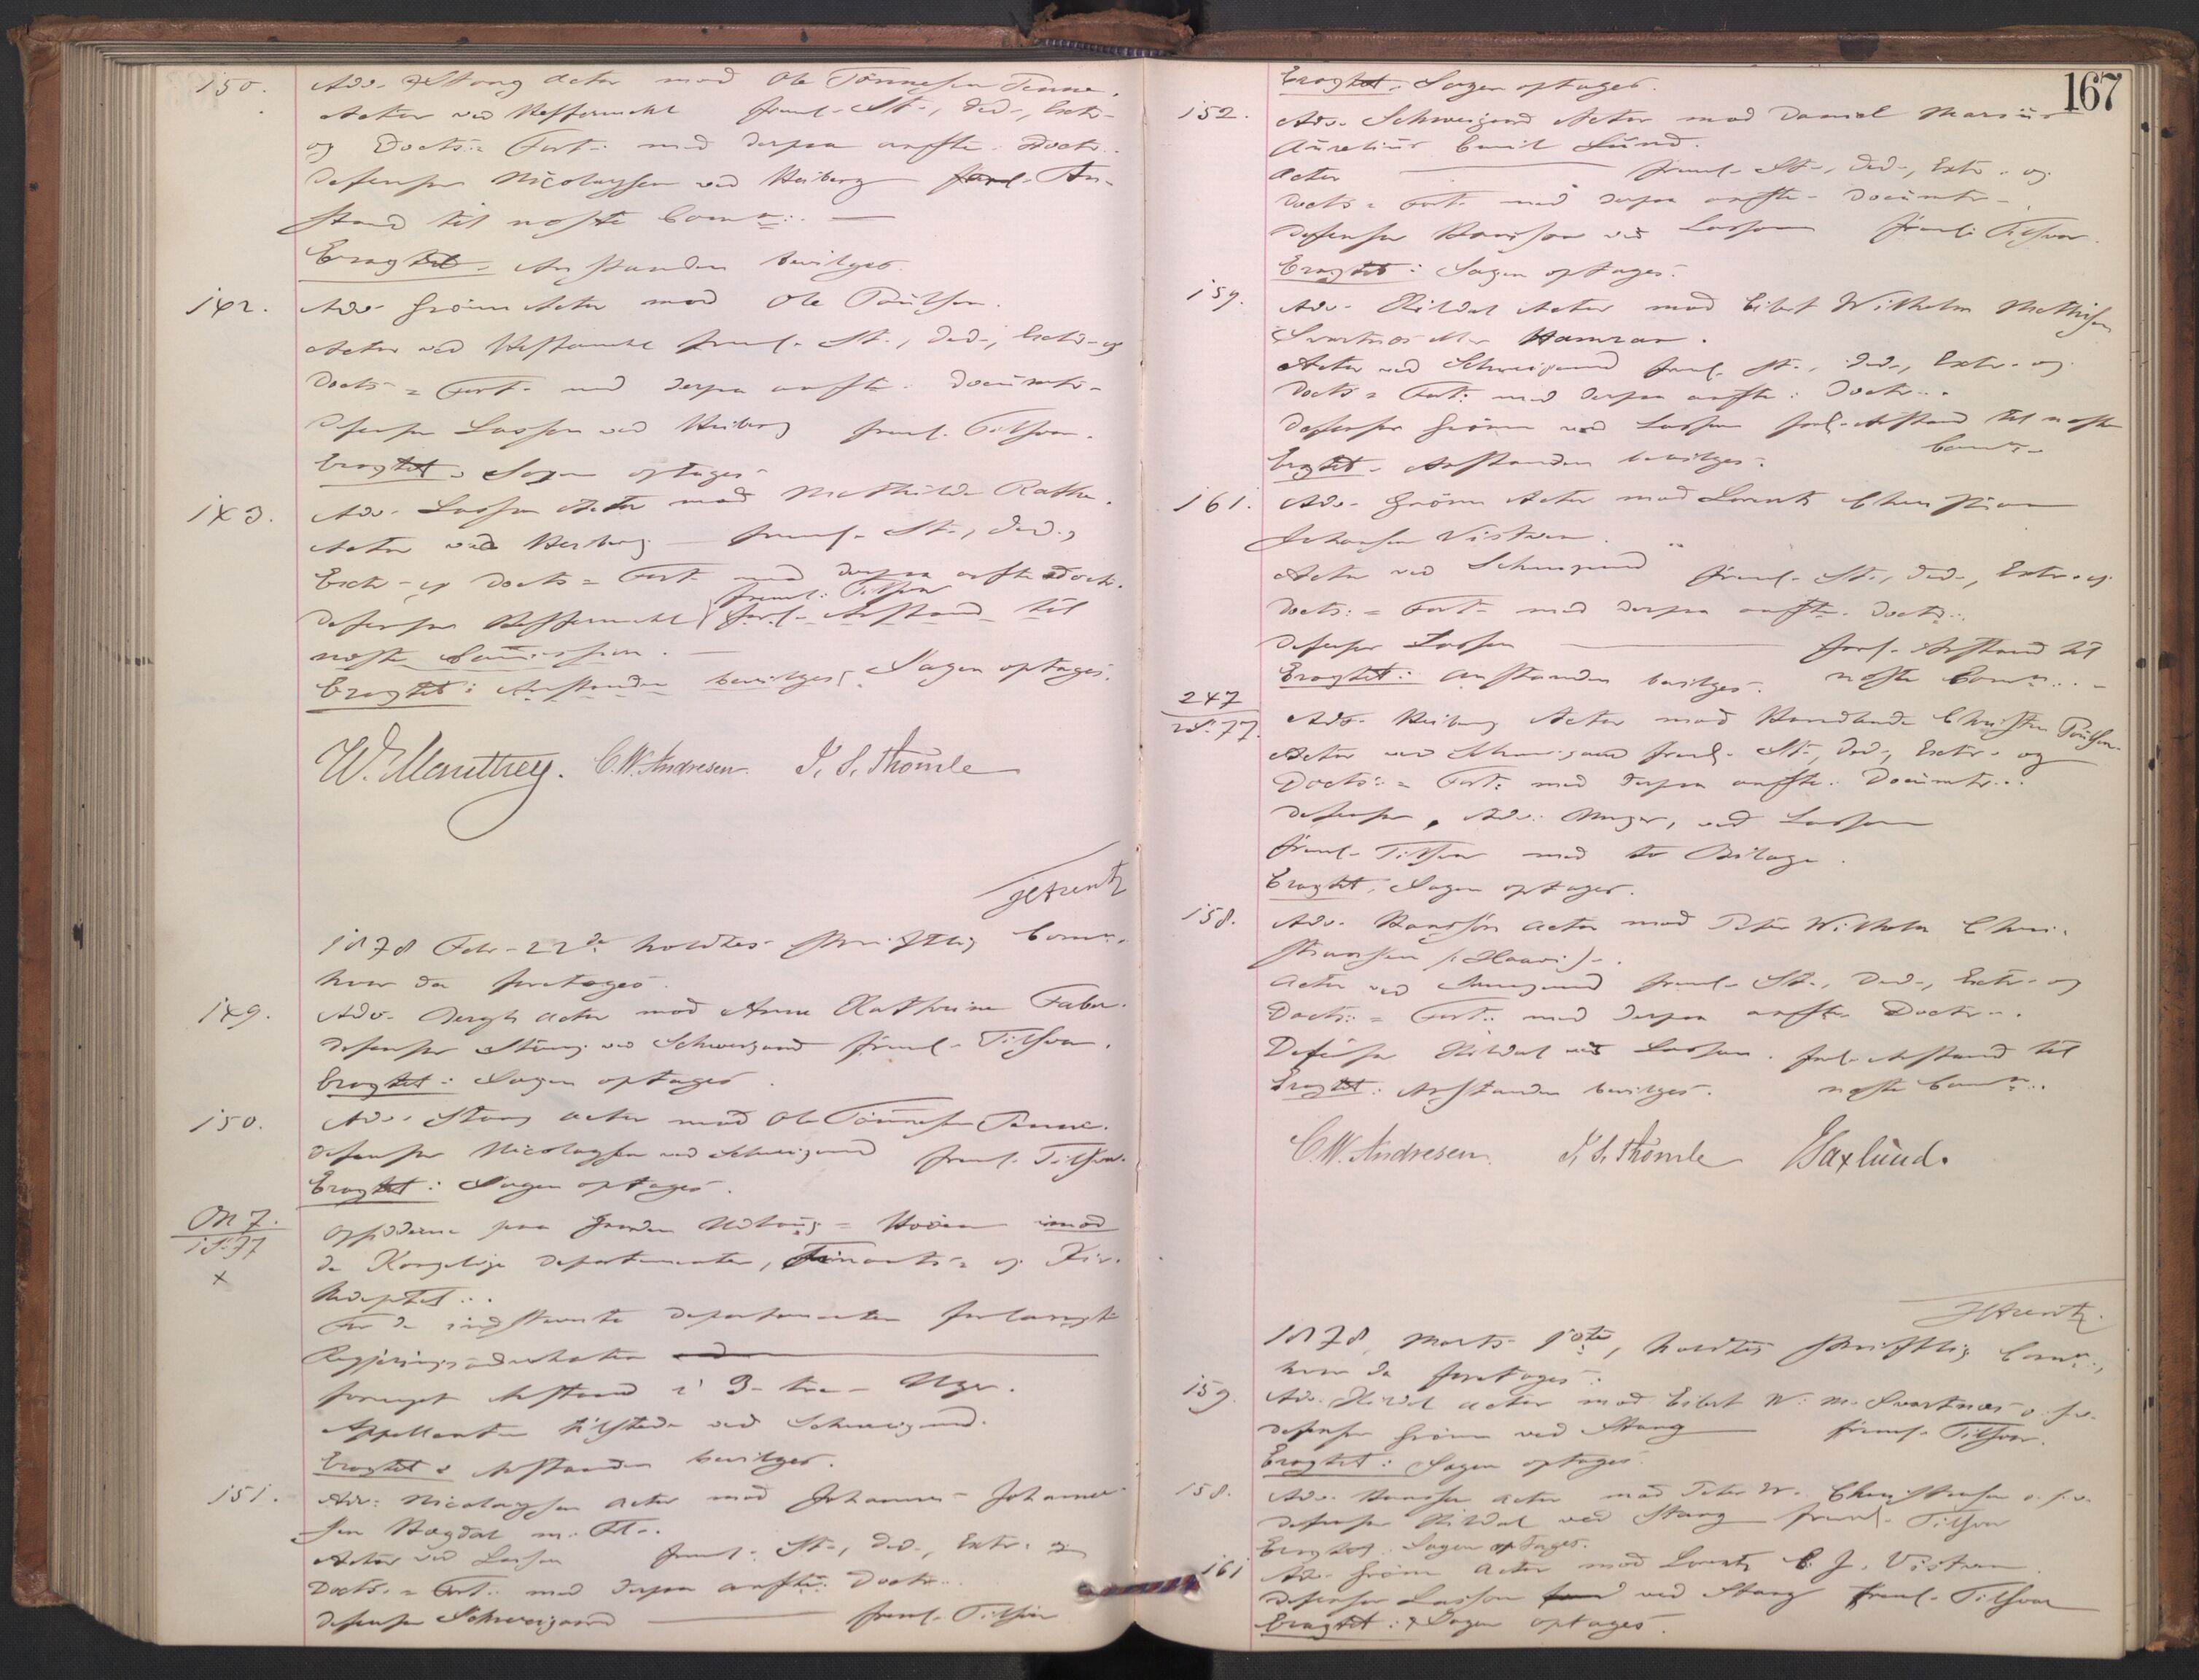 150. Adv. Stang Actor mod Ole Tønnesen Tenne.
Actor ved Reffernuhl freml. St., Ded., Extr.
og Docts = Fort. med derpaa anførte Doctr.
Defensor Nicolaysen ved Heiberg An-
stand til næste Comn.
Eragtet. Anstanden bevilges.
142. Adv. Grönn Actor mod Ole Paulsen.
Actor ved freml. St., Ded., Extr. og
Docts = Fort. med derpaa anførte Documtr.
Defensor Lassen ved Heiberg freml. Tilsvar.
Eragtet. Sagen optages.
143. Adv. Lassen Actor mod Mathilde Rathe.
Actor ved Heiberg freml. St., Ded.,
Extr. og Docts = Fort. med derpaa anførte Doctr.
freml. Tilsvar
Defensor forl. Anstand til
næste Commission.
Eragtet: Anstanden bevilges, Sagen optages.
W. Manthey. C.W. Andresen. T. S. Thomle
JCArentz
1878 Febr. 22de holdtes skriftlig Comn.
hvor da foretoges
149. Adv. Bergh Actor mod Anne Kathrine Faber.
Defensor Stang ved Schweigaard freml. Tilsvar.
Eragtet: Sagen optages.
150. Adv. Stang Actor mod Ole Tønnesen Tenne.
Defensor Nicolaysen ved Schweigaard freml. Tilsvar.
Eragtet: Sagen optages.
ON 7.
1S. 77
x
Opsidderne paa Gaarden imod
de Kongelige Departementer, Finants- og Kir.
For de indstevnte Departementer forlangte
Regjeringsadvokaten
fornyet Anstand i 3 - tre - Uger.
Appellanterne tilstede ved Schweigaard.
Eragtet: Anstanden bevilges.
151. Adv. Nicolaysen Actor mod Johannes Johanne-
sen Hagdal m. Fl.
Actor ved Lassen freml. St., Ded., Extr. og
Docts. = Fort. med derpaa anførte Doctr.
Defensor Schweigaard freml. Tilsvar
167
Eragtet. Sagen optages.
152. Adv. Schweigaard Actor mod Daniel Marius
Aurelius Emil Lund.
Actor freml. St., Ded., Extr. og
Docts = Fort. med derpaa anførte Documtr.
Defensor Hansson ved Lassen freml. Tilsvar.
Eragtet: Sagen optages.
159. Adv. Hildal Actor mod Eibert Wilhelm Mathisen
Svartnæs eller Hamran.
Actor ved Schweigaard freml. St., Ded., Extr. og
Docts = Fort. med derpaa anførte Doctr.
Defensor Grönn ved Lassen forl. Anstand til næste
Comn.
Eragtet. Anstanden bevilges.
161. Adv. Grönn Actor mod Lorentz Christian
Johansen Vistven.
Actor ved Schweigaard freml. St., Ded., Extr. og
Docts. = Fort. med derpaa anførte Doctr.
Defensor Lassen forl. Anstand til
Eragtet: Anstanden bevilges. næste Comn.
247
2S. 77.
Adv. Heiberg Actor mod Handlende Christen Poulsen.
Actor ved Schweigaard freml. St., Ded., Extr. og
Docts. = Fort. med derpaa anførte Documtr.
Defensor, Adv. Unger, ved Lassen
freml. Tilsvar med to Bilage.
Eragtet, Sagen optages.
158. Adv. Hansson Actor mod Peter Wilhelm Chri-
stiansen
Actor ved Schweigaard freml. St., Ded., Extr. og
Docts. = Fort. med derpaa anførte Doctr.
Defensor Hildal ved Lassen. forl. Anstand til
Eragtet: Anstanden bevilges. næste Comn.
C.W. Andresen. T. S. Thomle Saxlund.
JCArentz.
1878, Marts 1ste, holdtes skriftlig Comn.,
hvor da foretoges:
159. Adv. Hildal Actor mod Eibert W. M. Svartnæs o. s. v.
Defensor Grönn ved Stang freml. Tilsvar.
Eragtet: Sagen optages.
158. Adv. Hansson Actor mod Peter W. Christiansen o. s. v.
Defensor Hildal ved Stang freml. Tilsvar
Eragtet: Sagen optages.
161 Adv. Grönn Actor mod Lorentz C. J. Vistven.
Defensor Lassen ved Stang freml. Tilsvar
Eragtet: Sagen optages.